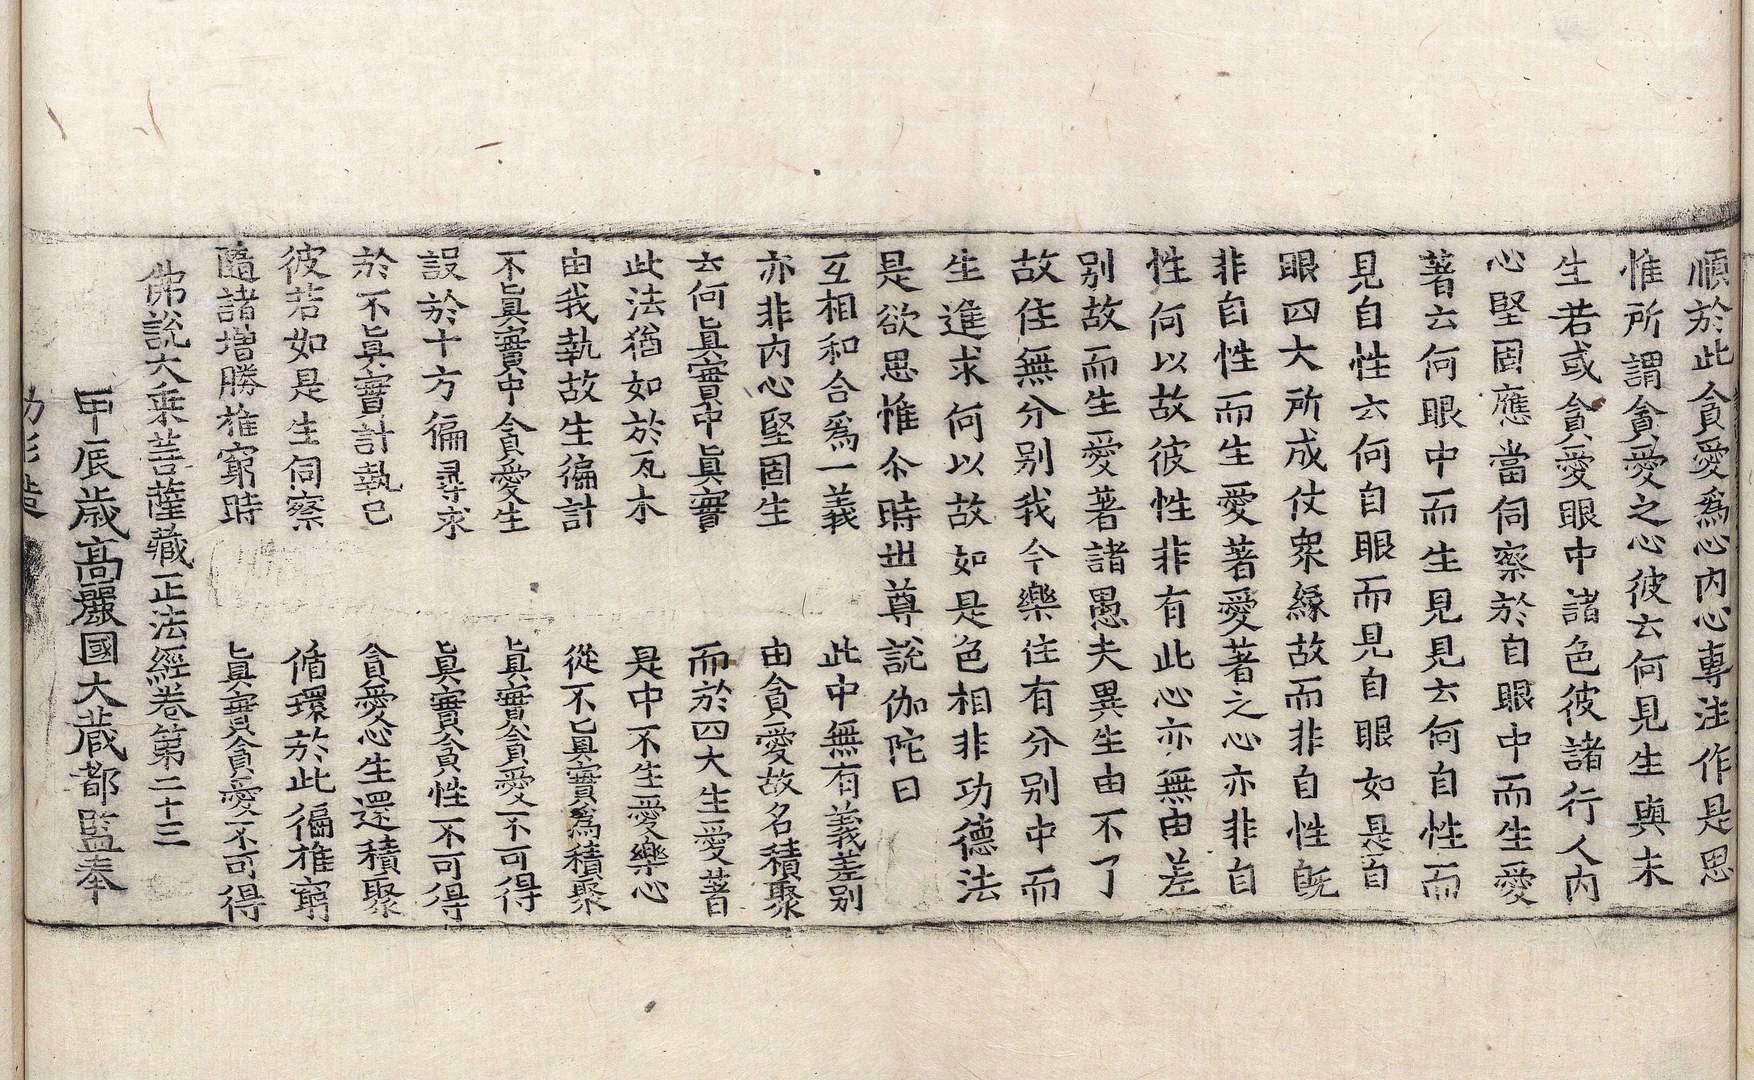 順於此貪愛爲心內心專注作是思
惟所謂貪愛之心彼云何見生與未
生若或貪愛眼中諸色彼諸行人內
心堅固應當伺察於自眼中而生愛
著云何眼中而生見見云何自性而
見自性云何自眼而見自眼如是自
眼四大所成仗衆緣故而非自性旣
非自性而生愛著愛著之心亦非自
性何以故彼性非有此心亦無由差
別故而生愛著諸愚夫異生由不了
故住無分別我今樂住有分別中而
生進求何以故如是色相非功德法
是欲思惟尒時世尊說伽陀曰
互相和合爲一義　此中無有義差別
亦非內心堅固生　由貪愛故名積聚
云何眞實中眞實　而於四大生愛著
此法猶如於瓦木　是中不生愛樂心
由我執故生徧計　從不眞實爲積聚
不眞實中貪愛生　眞實貪愛不可得
設於十方徧尋求　眞實貪性不可得
於不眞實計執已　貪愛心生還積聚
彼若如是生伺察　循環於此徧推窮
隨諸增勝推窮時　眞實貪愛不可得
佛說大乘菩薩藏正法經卷第二十三
甲辰歲高麗國大藏都監奉
勑彫造